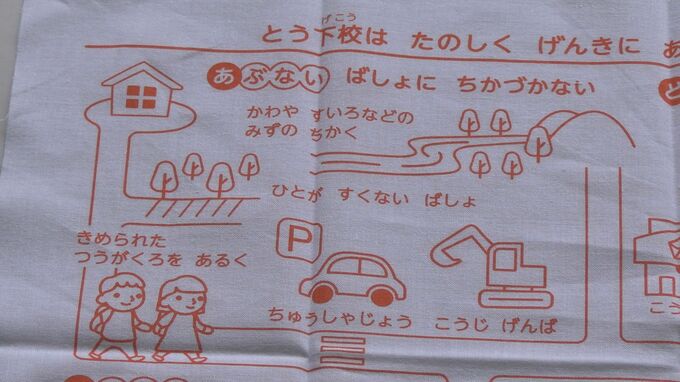 とう下校は たのしく げんきに あ
げこう
あぶない ばしょに ちかづかない
かわや すいろなどの
みずの ちかく
ひとが すくない ばしょ
きめられた
つうがくろを あるく
P
ちゅうしゃじょう こうじ げんば
こう